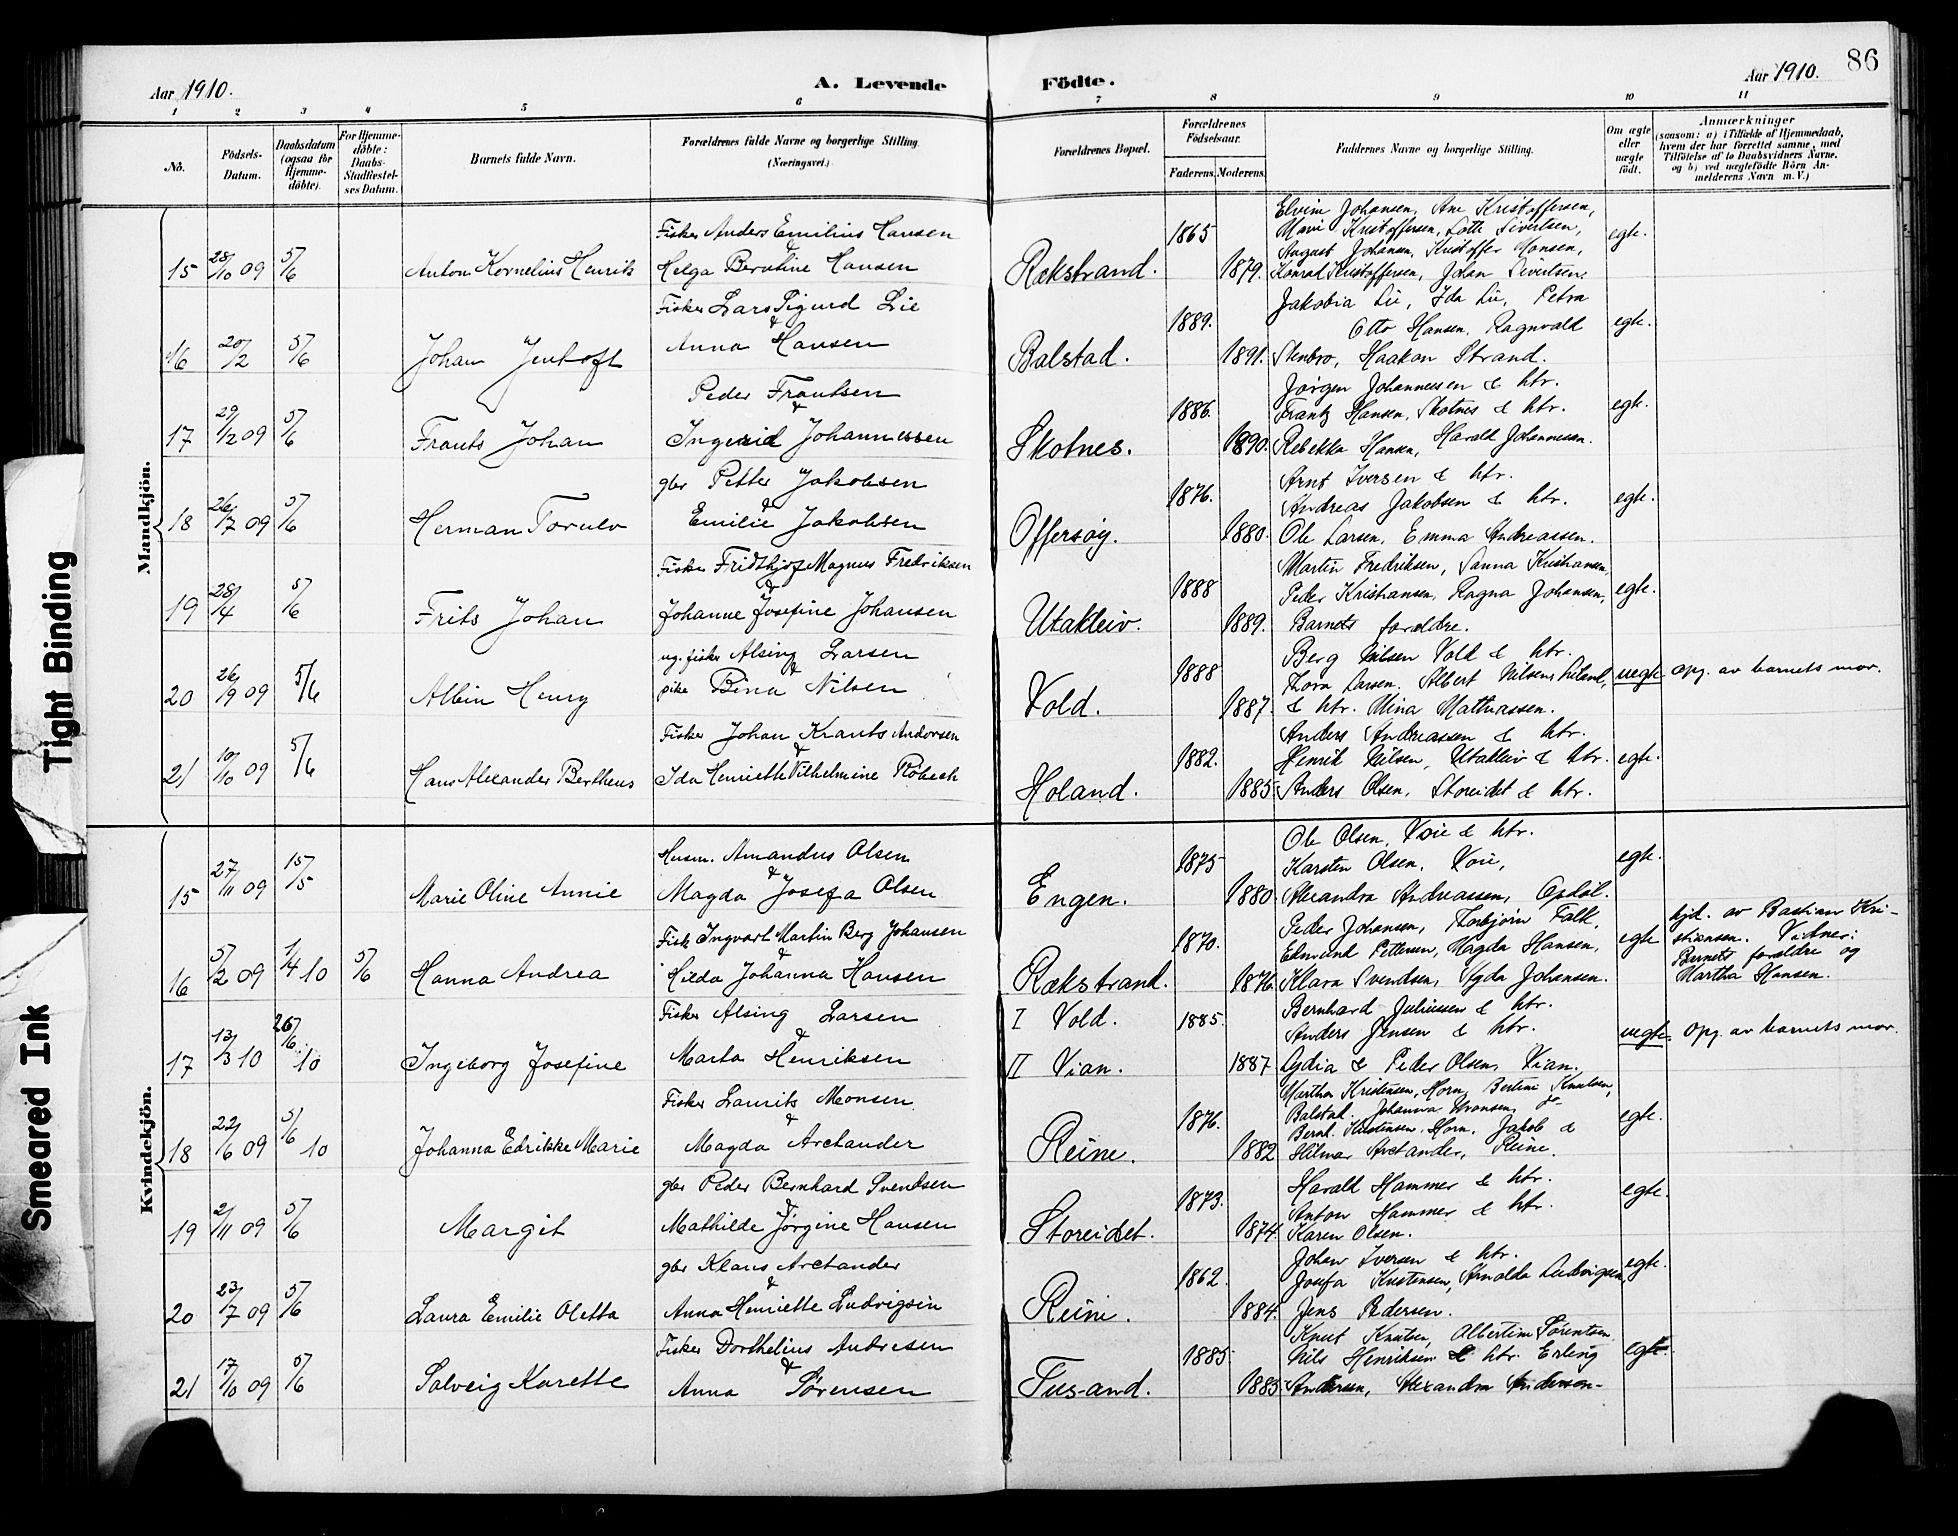 86
Aar 1910. A. Levende Födte. Aar 1910.
1 2 3 4 5 6 7 8 9 10 11
No.
Födsels-
Datum.
Daabsdatum
(ogsaa for
Hjemme-
døbte).
For Hjemme-
døbte:
Daabs-
Stadfæstel-
ses Datum.
Barnets fulde Navn.
Forældrenes fulde Navne og borgerlige Stilling
(Næringsvei.)
Forældrenes Bopæl.
Forældrenes
Födselsaar.
Faderens. Moderens.
Faddernes Navne og borgerlige Stilling.
Om ægte
eller
uægte
født.
Anmærkninger
(saasom: a) i Tilfælde af Hjemmedaab,
hvem der har forrettet samme, med
Tilføielse af to Daabsvidners Navne,
og b) ved uægtefødte Børn An-
melderens Navn m. V.)
Mandkjön.
Fisker Anders Emilius Hansen
&
15 28/10 09 5/6 Anton Kornelius Henrik Helga Berntine Hansen Rækstrand. 1865 1879. egte.
Elvine Johansen, Ane Kristoffersen,
Marie Kristoffersen, Lotte Sivertsen,
August Johansen, Kristoffer Monsen,
Konrad Kristoffersen, Johan Sivertsen.
Fisker Lars Sigurd Lie
&
16 20/2 5/6 Johan Jentoft Anna Hansen Balstad. 1889. 1891. egte.
Jakobia Lie, Ida Lie, Petra
Otto Hansen, Ragnvald
Stenbro, Haakon Strand.
Peder Frantsen
&
17 29/12 09 5/6 Frants Johan Ingerid Johannessen Skotnes. 1886. 1890. egte.
Jørgen Johannessen & htr.
Frantz Hansen, Skotnes & htr.
Rebekka Hansen, Harald Johannessen.
gbr Petter Jakobsen
&
18 26/7 09 5/6 Herman Torulv Emilie Jakobsen Offersøy. 1876. 1880. egte.
Arnt Iversen & htr.
Andreas Jakobsen & htr.
Ole Larsen, Emma Andreassen.
Fisker Fridthjof Magnus Fredriksen
&
19 28/4 5/6 Frits Johan Johanne Josefine Johansen Utakleiv. 1888 1889. egte.
Martin Fredriksen, Sanna Kristiansen,
Peder Kristiansen, Ragna Johansen,
Barnets forældre.
ug. fisker Alsing Larsen
&
20 26/9 09 5/6 Albin Henry pike Bina Nilsen Vold. 1888 1887. uegte opg. av barnets mor.
Berg Nilsen Vold & htr.
Thora Larsen, Albert Nilsen,
& htr. Mina Mathiassen.
Fisker Johan Krants Andersen
&
21 10/10 09 5/6 Hans Alexander Bertheus Ida Henriette Vilhelmine Robech Holand. 1882. 1885 egte.
Anders Andreassen & htr.
Henrik Nilsen, Utakleiv & htr.
Anders Olsen, Storeidet & htr.
Kvindekjön.
Husm. Amandus Olsen
&
15 27/11 09 15/5 Marie Oline Annie Magda Josefa Olsen Engen. 1875 1880. egte.
Ole Olsen, Voie & htr.
Karsten Olsen, Voie,
Alexandra Andreassen, Opdøl.
Fisk Ingvart Martin Berg Johansen
&
16 5/2 09 1/4 10 5/6 Hanna Andrea Hilda Johanna Hansen Rækstrand. 1870. 1876 egte
Peder Johansen, Thorbjørn Falk,
Edmund Pettersen, Magda Hansen,
Klara Svendsen, Hyda Johansen.
hjd. av Bastian Kri-
stiansen. Vidner:
Barnets forældre og
Martha Hansen.
Fisker Alsing Larsen
&
17 13/3 10 26/6 10 Ingeborg Josefine Marta Henriksen I Vold. II Vian. 1885. 1887 uegte. opg. av barnets mor.
Bernhard Juliussen & htr.
Anders Jensen & htr.
Lydia & Peder Olsen, Vian.
Fisker Laurits Monsen
&
18 22/6 09 5/6 10 Johanna Edrikke Marie Magda Arctander Reine. 1876. 1882 egte.
Martha Kristensen, Horn, Bertine Knutsen,
Balstad. Johanna Hansen, do
Bernh. Kristensen, Horn. Jakob &
Hilmar Arctander, Reine.
gbr Peder Bernhard Svendsen
&
19 2/11 09 5/6 Margit Mathilde Jørgine Hansen Storeidet. 1873. 1874 egte.
Harald Hammer & htr.
Anton Hammer & htr.
Karen Olsen.
gbr Klaus Arctander
&
20 23/7 09 5/6 Laura Emilie Oletta Anna Henriette Ludvigsen Reine. 1862 1884. egte.
Johan Iversen & htr.
Josefa Kristensen, Arnolda Ludvigsen,
Jens Pedersen.
Fisker Dorthelius Andresen
&
21 17/10 09 5/6 Solveig Karette Anna Sørensen Fusand. 1885 1883 egte.
Knut Knutsen, Albertine Sørentsen,
Nils Henriksen & htr. Erling
Andersen, Alexandra Anderson-
Tight Binding
Smeared Ink